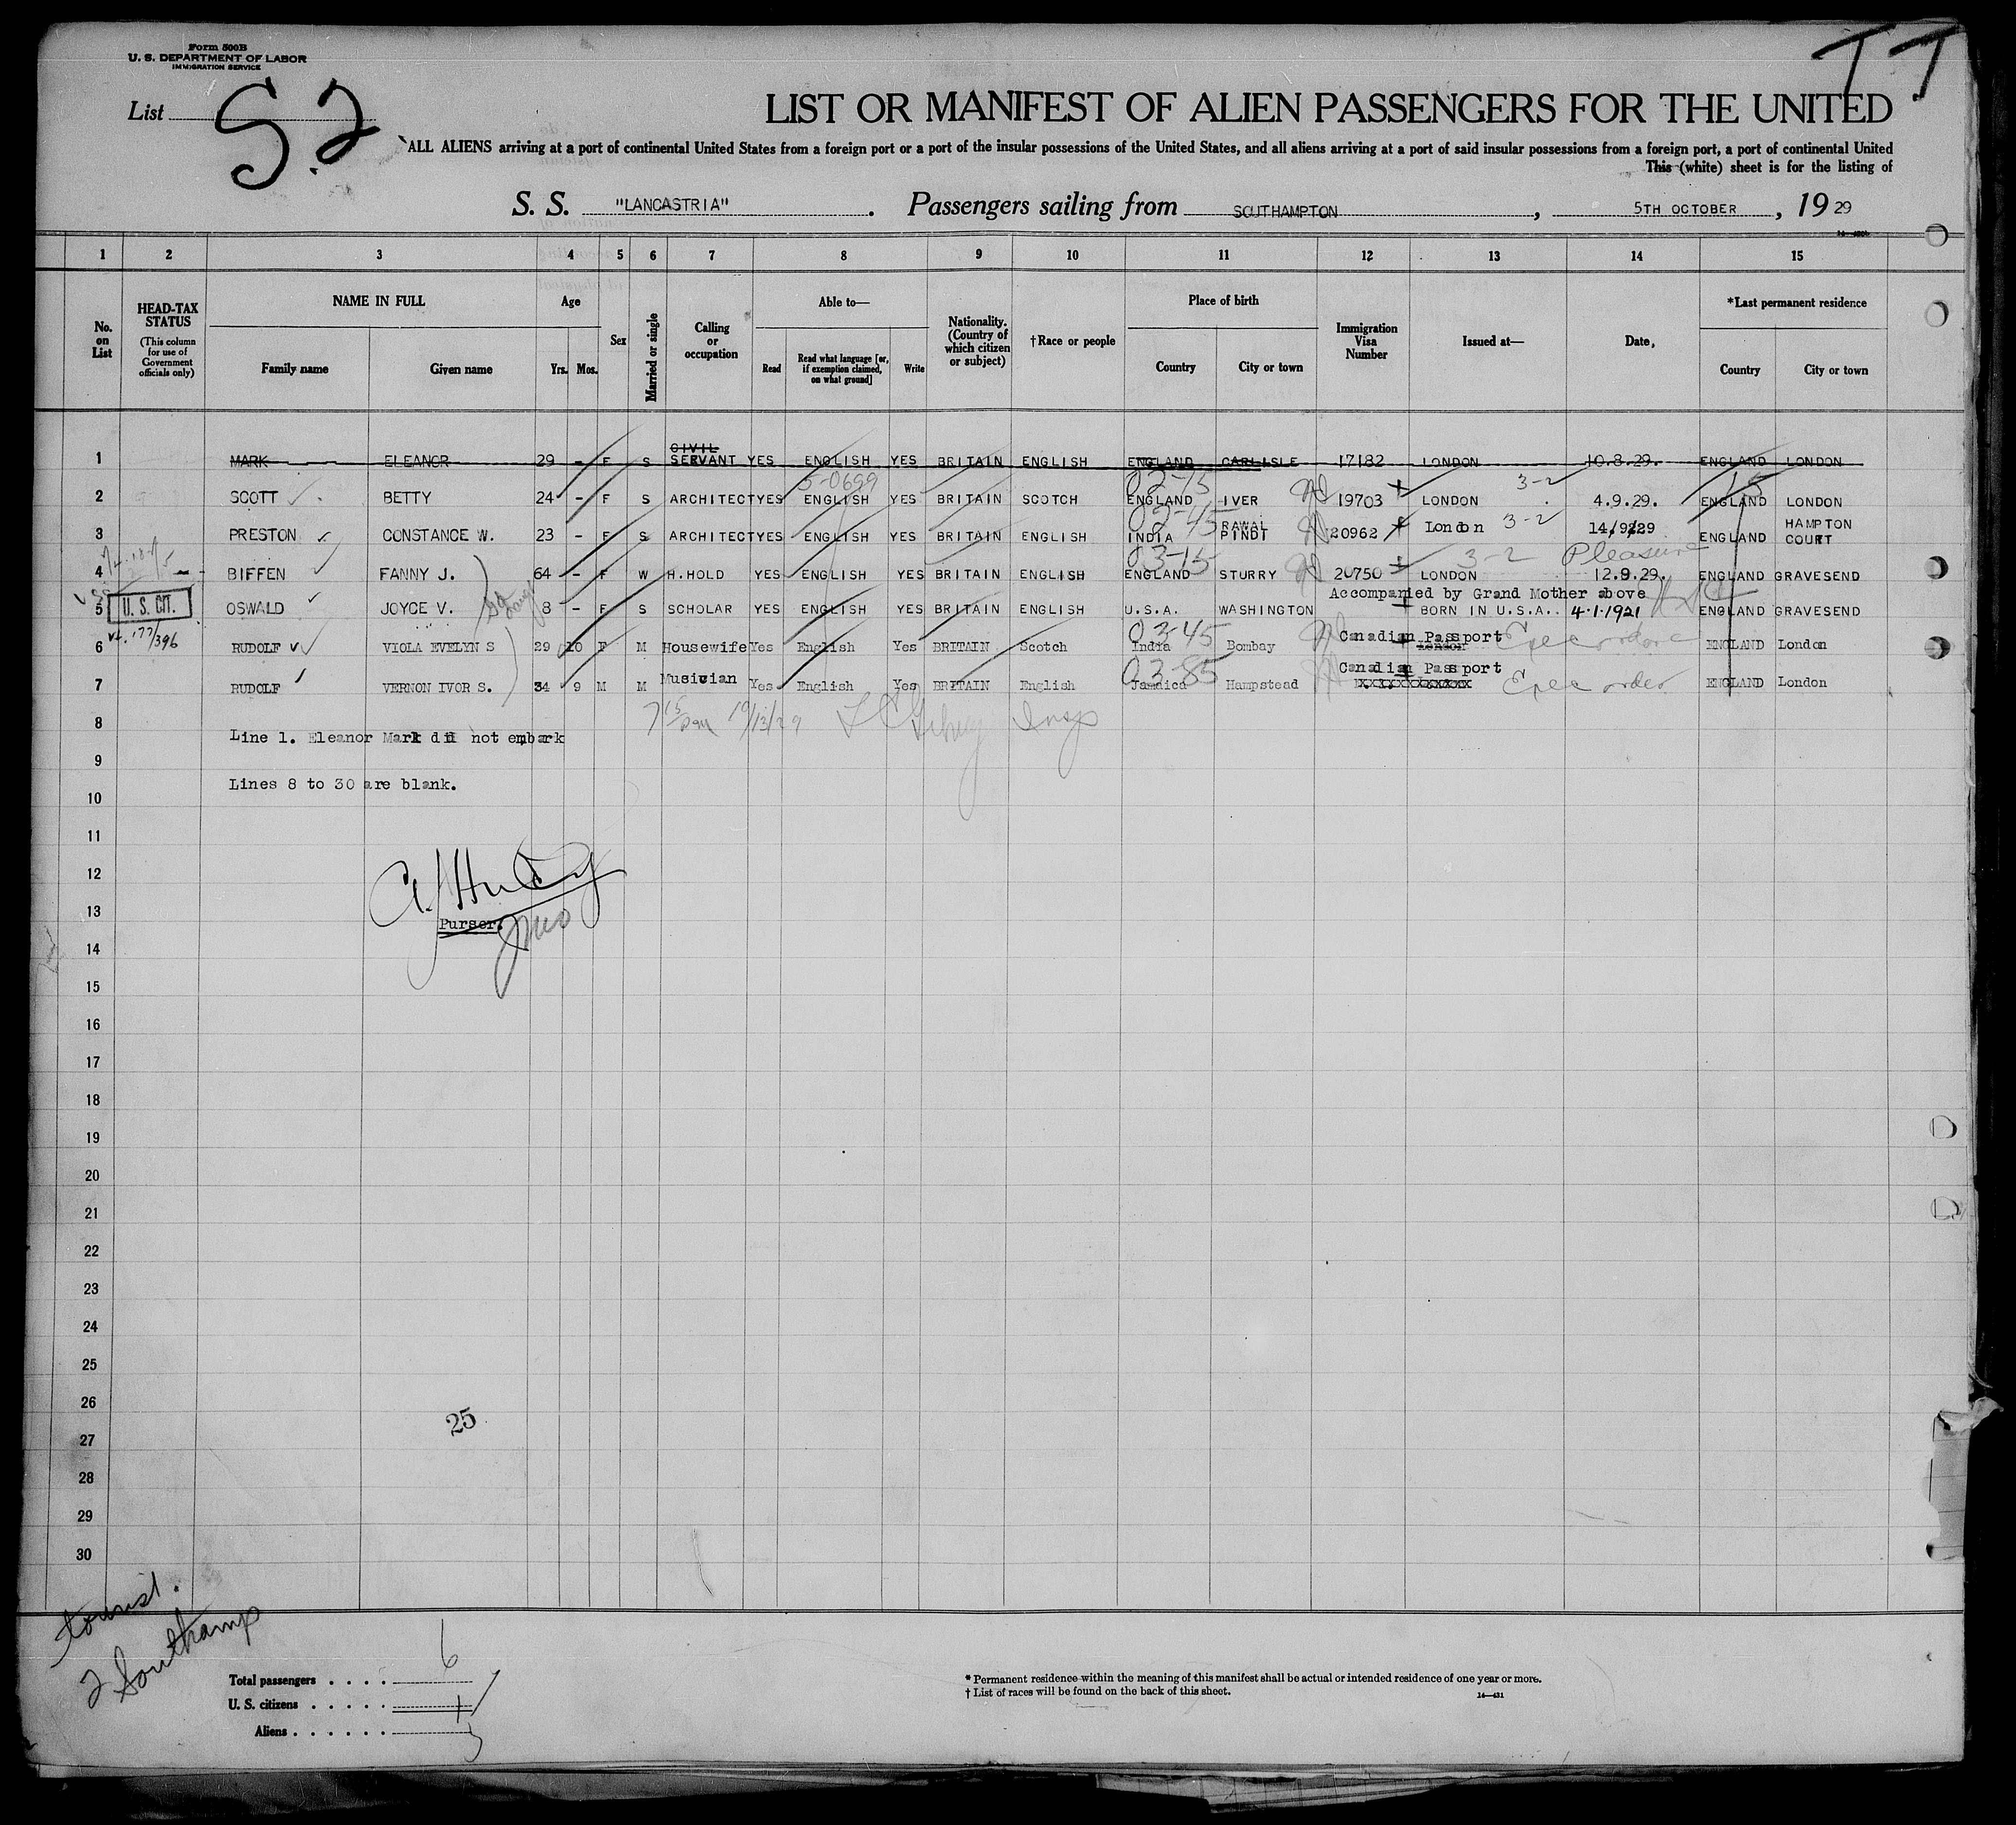 Form 500B
U. S. DEPARTMENT OF LABOR
IMMIGRATION SERVICE
TT
List S2
LIST OR MANIFEST OF ALIEN PASSENGERS FOR THE UNITED
ALL ALIENS arriving at a port of continental United States from a foreign port or a port of the insular possessions of the United States, and all aliens arriving at a port of said insular possessions from a foreign port, a port of continental United
This (white) sheet is for the listing of
S. S. "LANCASTRIA". Passengers sailing from SOUTHAMPTON, 5TH OCTOBER, 19 29
1 2 3 4 5 6 7 8 9 10 11 12 13 14 15
No. on List
HEAD-TAX STATUS (This column for use of Government officials only)
NAME IN FULL
Family name Given name
Age
Yrs. Mos.
Sex
Married or single
Calling or occupation
Able to—
Read Read what language [or, if exemption claimed, on what ground] Write
Nationality. (Country of which citizen or subject)
†Race or people
Place of birth
Country City or town
Immigration Visa Number
Issued at—
Date,
*Last permanent residence
Country City or town
1 MARK ELEANOR 29 - F S CIVIL SERVANT YES ENGLISH YES BRITAIN ENGLISH ENGLAND CARLISLE 17182 LONDON 10.8.29. ENGLAND LONDON
5-0699 02-15 3-2 15
2 SCOTT BETTY 24 - F S ARCHITECT YES ENGLISH YES BRITAIN SCOTCH ENGLAND IVER 19703 LONDON 4.9.29. ENGLAND LONDON
02-45 3-2
3 PRESTON CONSTANCE W. 23 - F S ARCHITECT YES ENGLISH YES BRITAIN ENGLISH INDIA RAWAL PINDI 20962 London 14/9/29 ENGLAND HAMPTON COURT
03-15 3-2 Pleasure
4 BIFFEN FANNY J. 64 - F W H.HOLD YES ENGLISH YES BRITAIN ENGLISH ENGLAND STURRY 20750 LONDON 12.9.29. ENGLAND GRAVESEND
Accompanied by Grand Mother above
5 U. S. CIT. OSWALD JOYCE V. 8 - F S SCHOLAR YES ENGLISH YES BRITAIN ENGLISH U.S.A. WASHINGTON BORN IN U.S.A.. 4.1.1921 ENGLAND GRAVESEND
vt. 177/396
03-45 Canadian Passport
6 RUDOLF VIOLA EVELYN S 29 10 F M Housewife Yes English Yes BRITAIN Scotch India Bombay London Exec order ENGLAND London
03-85 Canadian Passport
7 RUDOLF VERNON IVOR S. 34 9 M M Musician Yes English Yes BRITAIN English Jamaica Hampstead XXXXXXXXXXXX Exec order ENGLAND London
8 10/13/29 Insp
Line 1. Eleanor Mark did not embark
9
Lines 8 to 30 are blank.
10
11
12
13 Purser.
14
15
16
17
18
19
20
21
22
23
24
25
26
25
27
28
29
30
tourist.
2 Southamp
Total passengers . . . . 6
U. S. citizens . . . . . 1
Aliens . . . . . . 5
* Permanent residence within the meaning of this manifest shall be actual or intended residence of one year or more.
† List of races will be found on the back of this sheet.
14—431